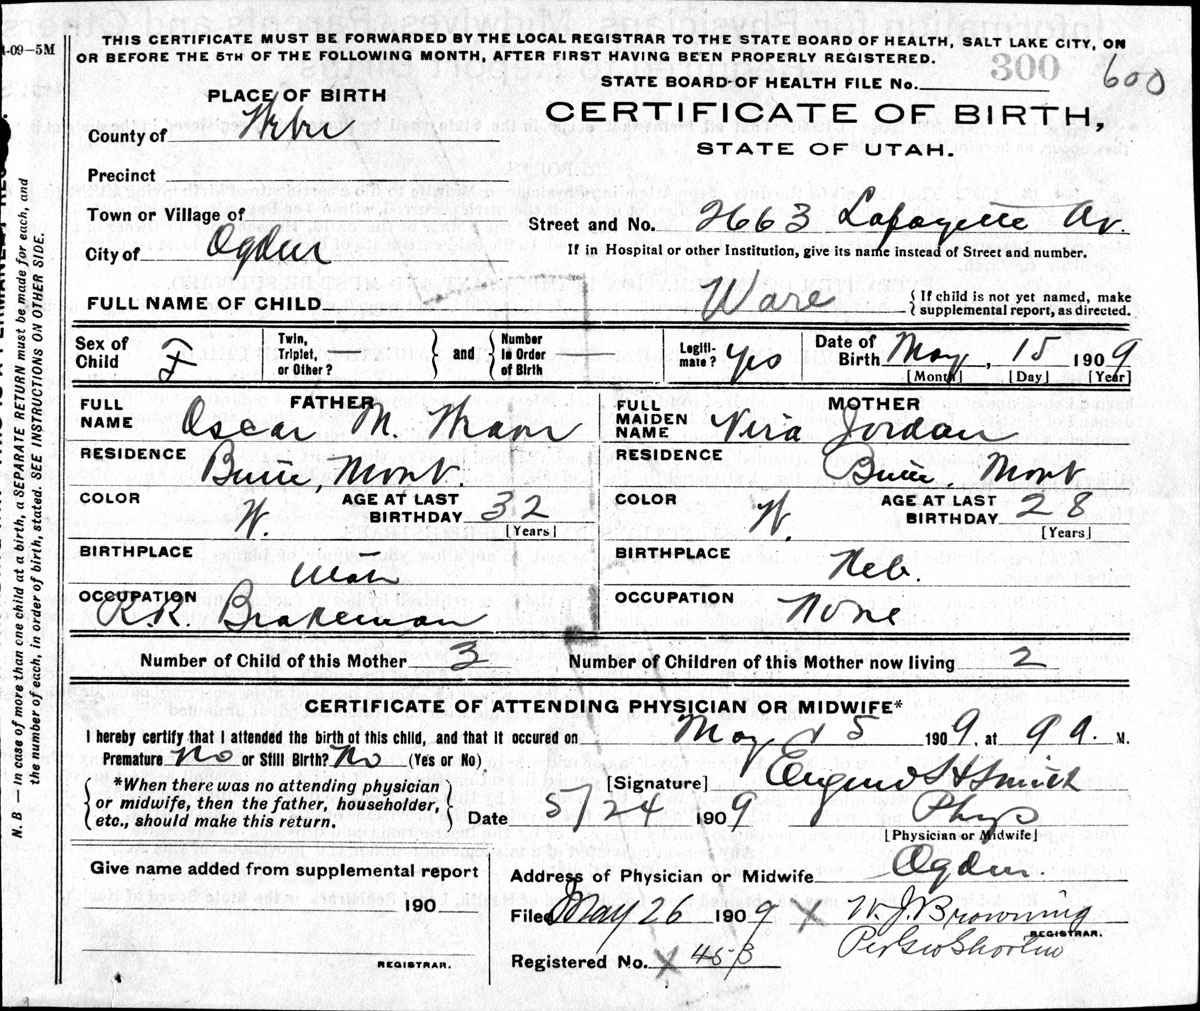 4-09-5M
THIS CERTIFICATE MUST BE FORWARDED BY THE LOCAL REGISTRAR TO THE STATE BOARD OF HEALTH, SALT LAKE CITY, ON
OR BEFORE THE 5TH OF THE FOLLOWING MONTH, AFTER FIRST HAVING BEEN PROPERLY REGISTERED.
300 600
STATE BOARD OF HEALTH FILE No.
PLACE OF BIRTH
CERTIFICATE OF BIRTH,
STATE OF UTAH.
County of
Precinct
Town or Village of
City of Ogden
Street and No. 2663 Lafayette Av.
If in Hospital or other Institution, give its name instead of Street and number.
FULL NAME OF CHILD Ware { If child is not yet named, make supplemental report, as directed.
Sex of Child F Twin, Triplet, or Other? } and { Number in Order of Birth Legiti-mate? Yes Date of Birth May, 15 1909
[Month] [Day] [Year]
FATHER
FULL NAME Oscar M.
RESIDENCE Butte, Mont.
COLOR W. AGE AT LAST BIRTHDAY 32
[Years]
BIRTHPLACE Utah
OCCUPATION R.R. Brakeman
MOTHER
FULL MAIDEN NAME Vira Jordan
RESIDENCE Butte Mont
COLOR W. AGE AT LAST BIRTHDAY 28
[Years]
BIRTHPLACE Neb.
OCCUPATION None
Number of Child of this Mother 3 Number of Children of this Mother now living 2
CERTIFICATE OF ATTENDING PHYSICIAN OR MIDWIFE*
I hereby certify that I attended the birth of this child, and that it occured on May 15 1909, at 9 A. M.
Premature No or Still Birth? No (Yes or No).
{ *When there was no attending physician
or midwife, then the father, householder,
etc., should make this return. }
[Signature] Eugene H Smith
Date 5/24 1909 Phys
[Physician or Midwife]
Address of Physician or Midwife Ogden.
Give name added from supplemental report
190
REGISTRAR.
Filed May 26 1909 X W. J. Browning
REGISTRAR.
Per Geo Shorten
Registered No. X 453
N. B. — In case of more than one child at a birth, a SEPARATE RETURN must be made for each, and
the number of each, in order of birth, stated. SEE INSTRUCTIONS ON OTHER SIDE.